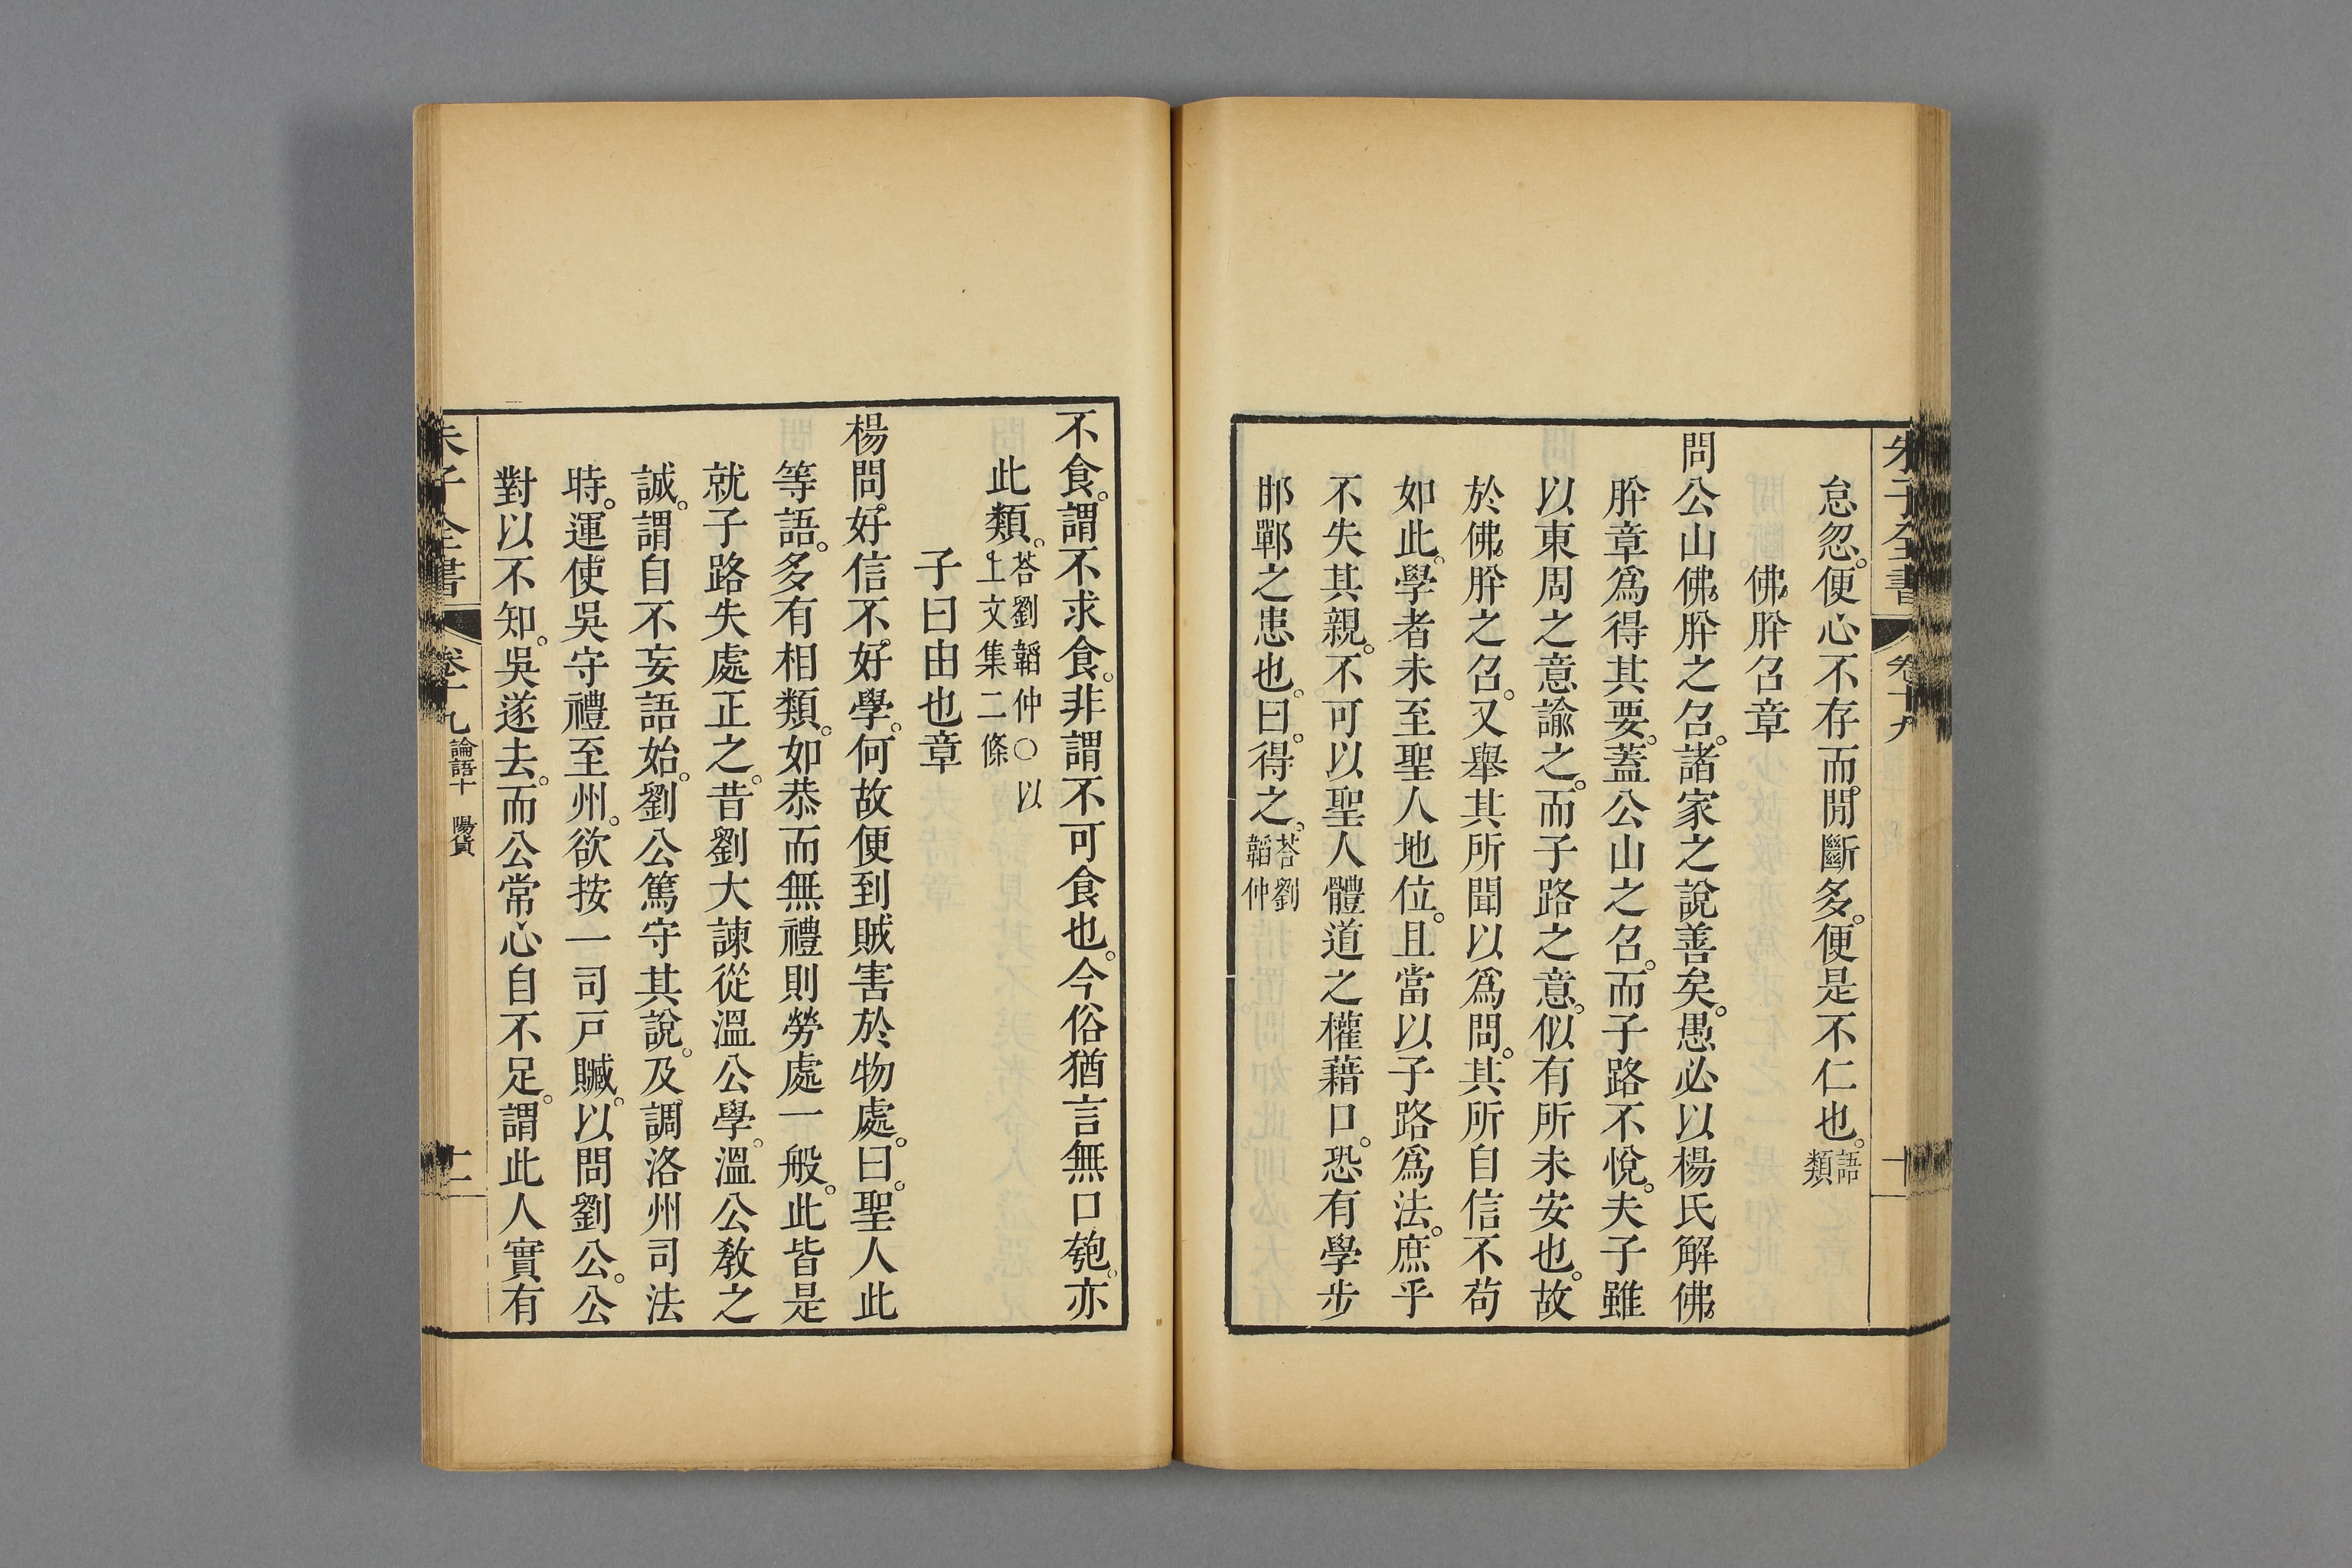 朱子全書 卷十九 十
怠忽。便心不存而閒斷多。便是不仁也。語類
佛肸召章
問公山佛肸之召。諸家之說善矣。愚必以楊氏解佛
肸章爲得其要。蓋公山之召。而子路不悅。夫子雖
以東周之意諭之。而子路之意。似有所未安也。故
於佛肸之召。又舉其所聞以爲問。其所自信不苟
如此。學者未至聖人地位。且當以子路爲法。庶乎
不失其親。不可以聖人體道之權藉口。恐有學步
邯鄲之患也。曰。得之。荅劉韜仲
不食。謂不求食。非謂不可食也。今俗猶言無口匏。亦
此類。荅劉韜仲〇以上文集二條
子曰由也章
楊問。好信不好學。何故便到賊害於物處。曰。聖人此
等語。多有相類。如恭而無禮則勞處一般。此皆是
就子路失處正之。昔劉大諫從溫公學。溫公敎之
誠。謂自不妄語始。劉公篤守其說。及調洛州司法
時。運使吳守禮至州。欲按一司戶贓。以問劉公。公
對以不知。吳遂去。而公常心自不足。謂此人實有
朱子全書 卷十九 論語十 陽貨